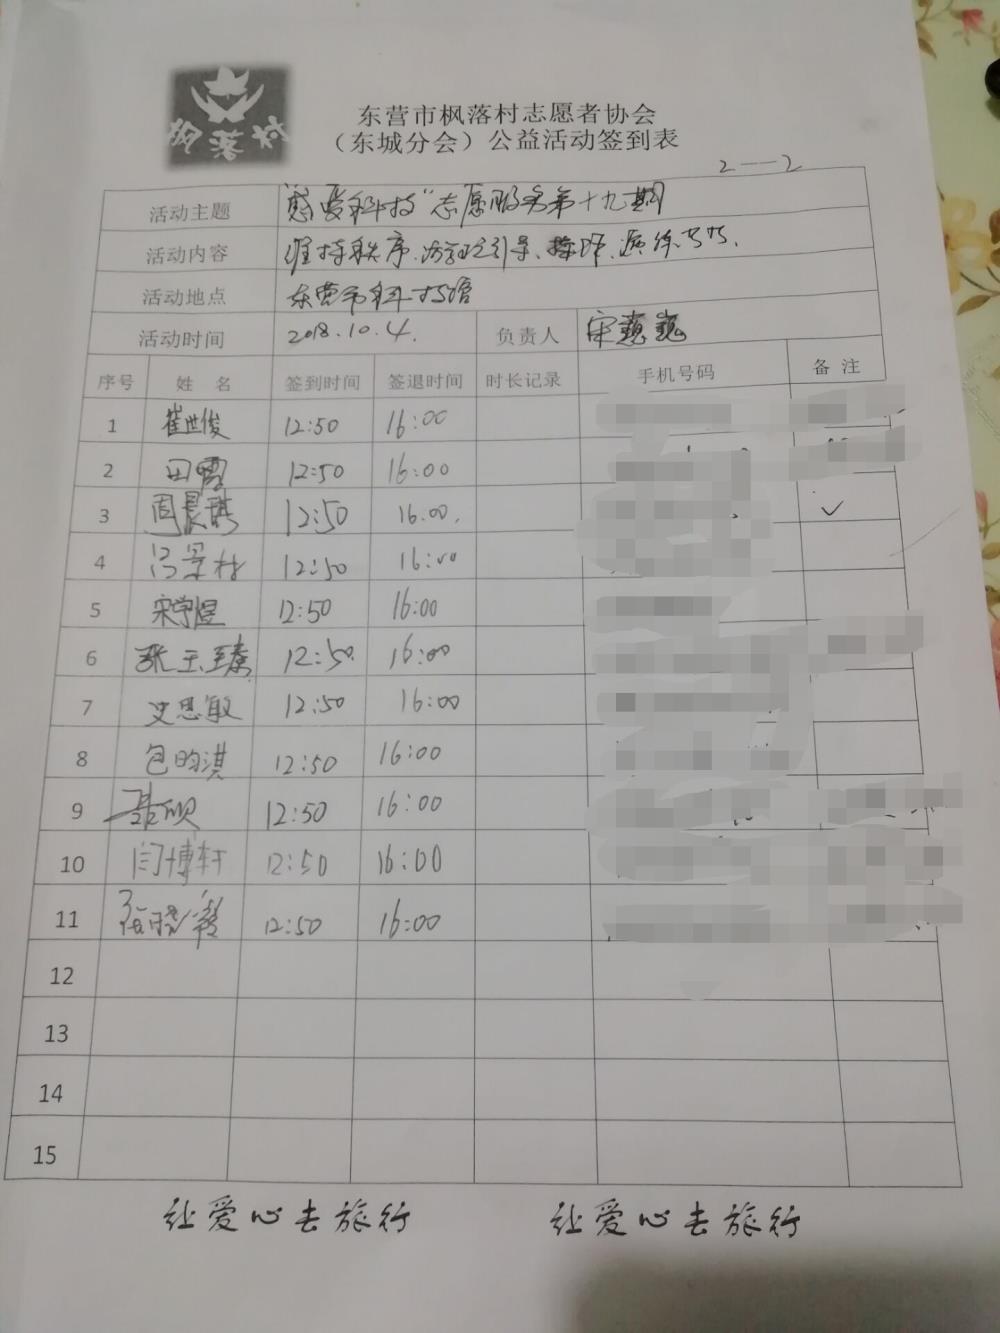 枫落村
东营市枫落村志愿者协会
（东城分会）公益活动签到表
2——2
活动主题 "慧爱科技"志愿服务第十九期
活动内容 维持秩序、引导、操作、
活动地点 东营市科技馆
活动时间 2018.10.4. 负责人 宋巍巍
序号 姓 名 签到时间 签退时间 时长记录 手机号码 备 注
1 崔世俊 12:50 16:00
2 田雪 12:50 16:00
3 周晨 12:50 16.00. ✓
4 冯景 12:50 16:00
5 宋学煜 12:50 16:00
6 张玉臻 12:50. 16:00
7 史思敏 12:50 16:00
8 包昀淇 12:50 16:00
9 聂硕 12:50 16:00
10 闫博轩 12:50 16:00
11 12:50 16:00
12
13
14
15
让爱心去旅行 让爱心去旅行